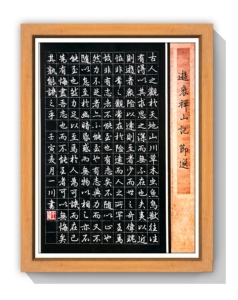 遊褒禪山記 節選
古人之觀於天地山川草木蟲魚鳥獸往往
有得以其求思之深而無不在也夫夷以近
則遊者衆險以遠則至者少而世之奇偉瑰
怪非常之觀常在於險遠而人之所罕至焉
故非有志者不能至也有志矣不隨以止也
然力不足者亦不能至也有志與力而又不
隨以怠至於幽暗昏惑而無物以相之亦不
能至也然力足以至焉於人為可譏而在己
為有悔盡吾志也而不能至者可以無悔矣
其孰能譏之乎 壬寅夏月 一川書